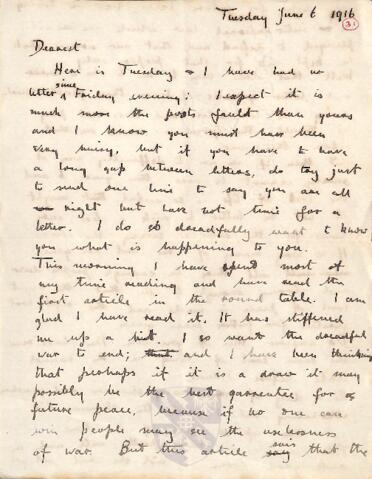 Tuesday June 6 1916
31
Dearest
Here is Tuesday & I have had no
letter since Friday evening: I expect it is
much more the posts fault than yours
and I know you must have been
very busy, but if you have to have
a long gap between letters, do try just
to send one line to say you are all
right but have not time for a
letter. I do so dreadfully want to know
you what is happening to you.
This morning I have spend most of
my time reading and have read the
first article in the round table. I am
glad I have read it. It has stiffened
me up a bit I so want the dreadful
war to end; and I have been thinking
that perhaps if it is a draw it may
possibly be the best garrentee for a
future peace, because if no one can
win people may see the uselessness
of war. But this article says that the